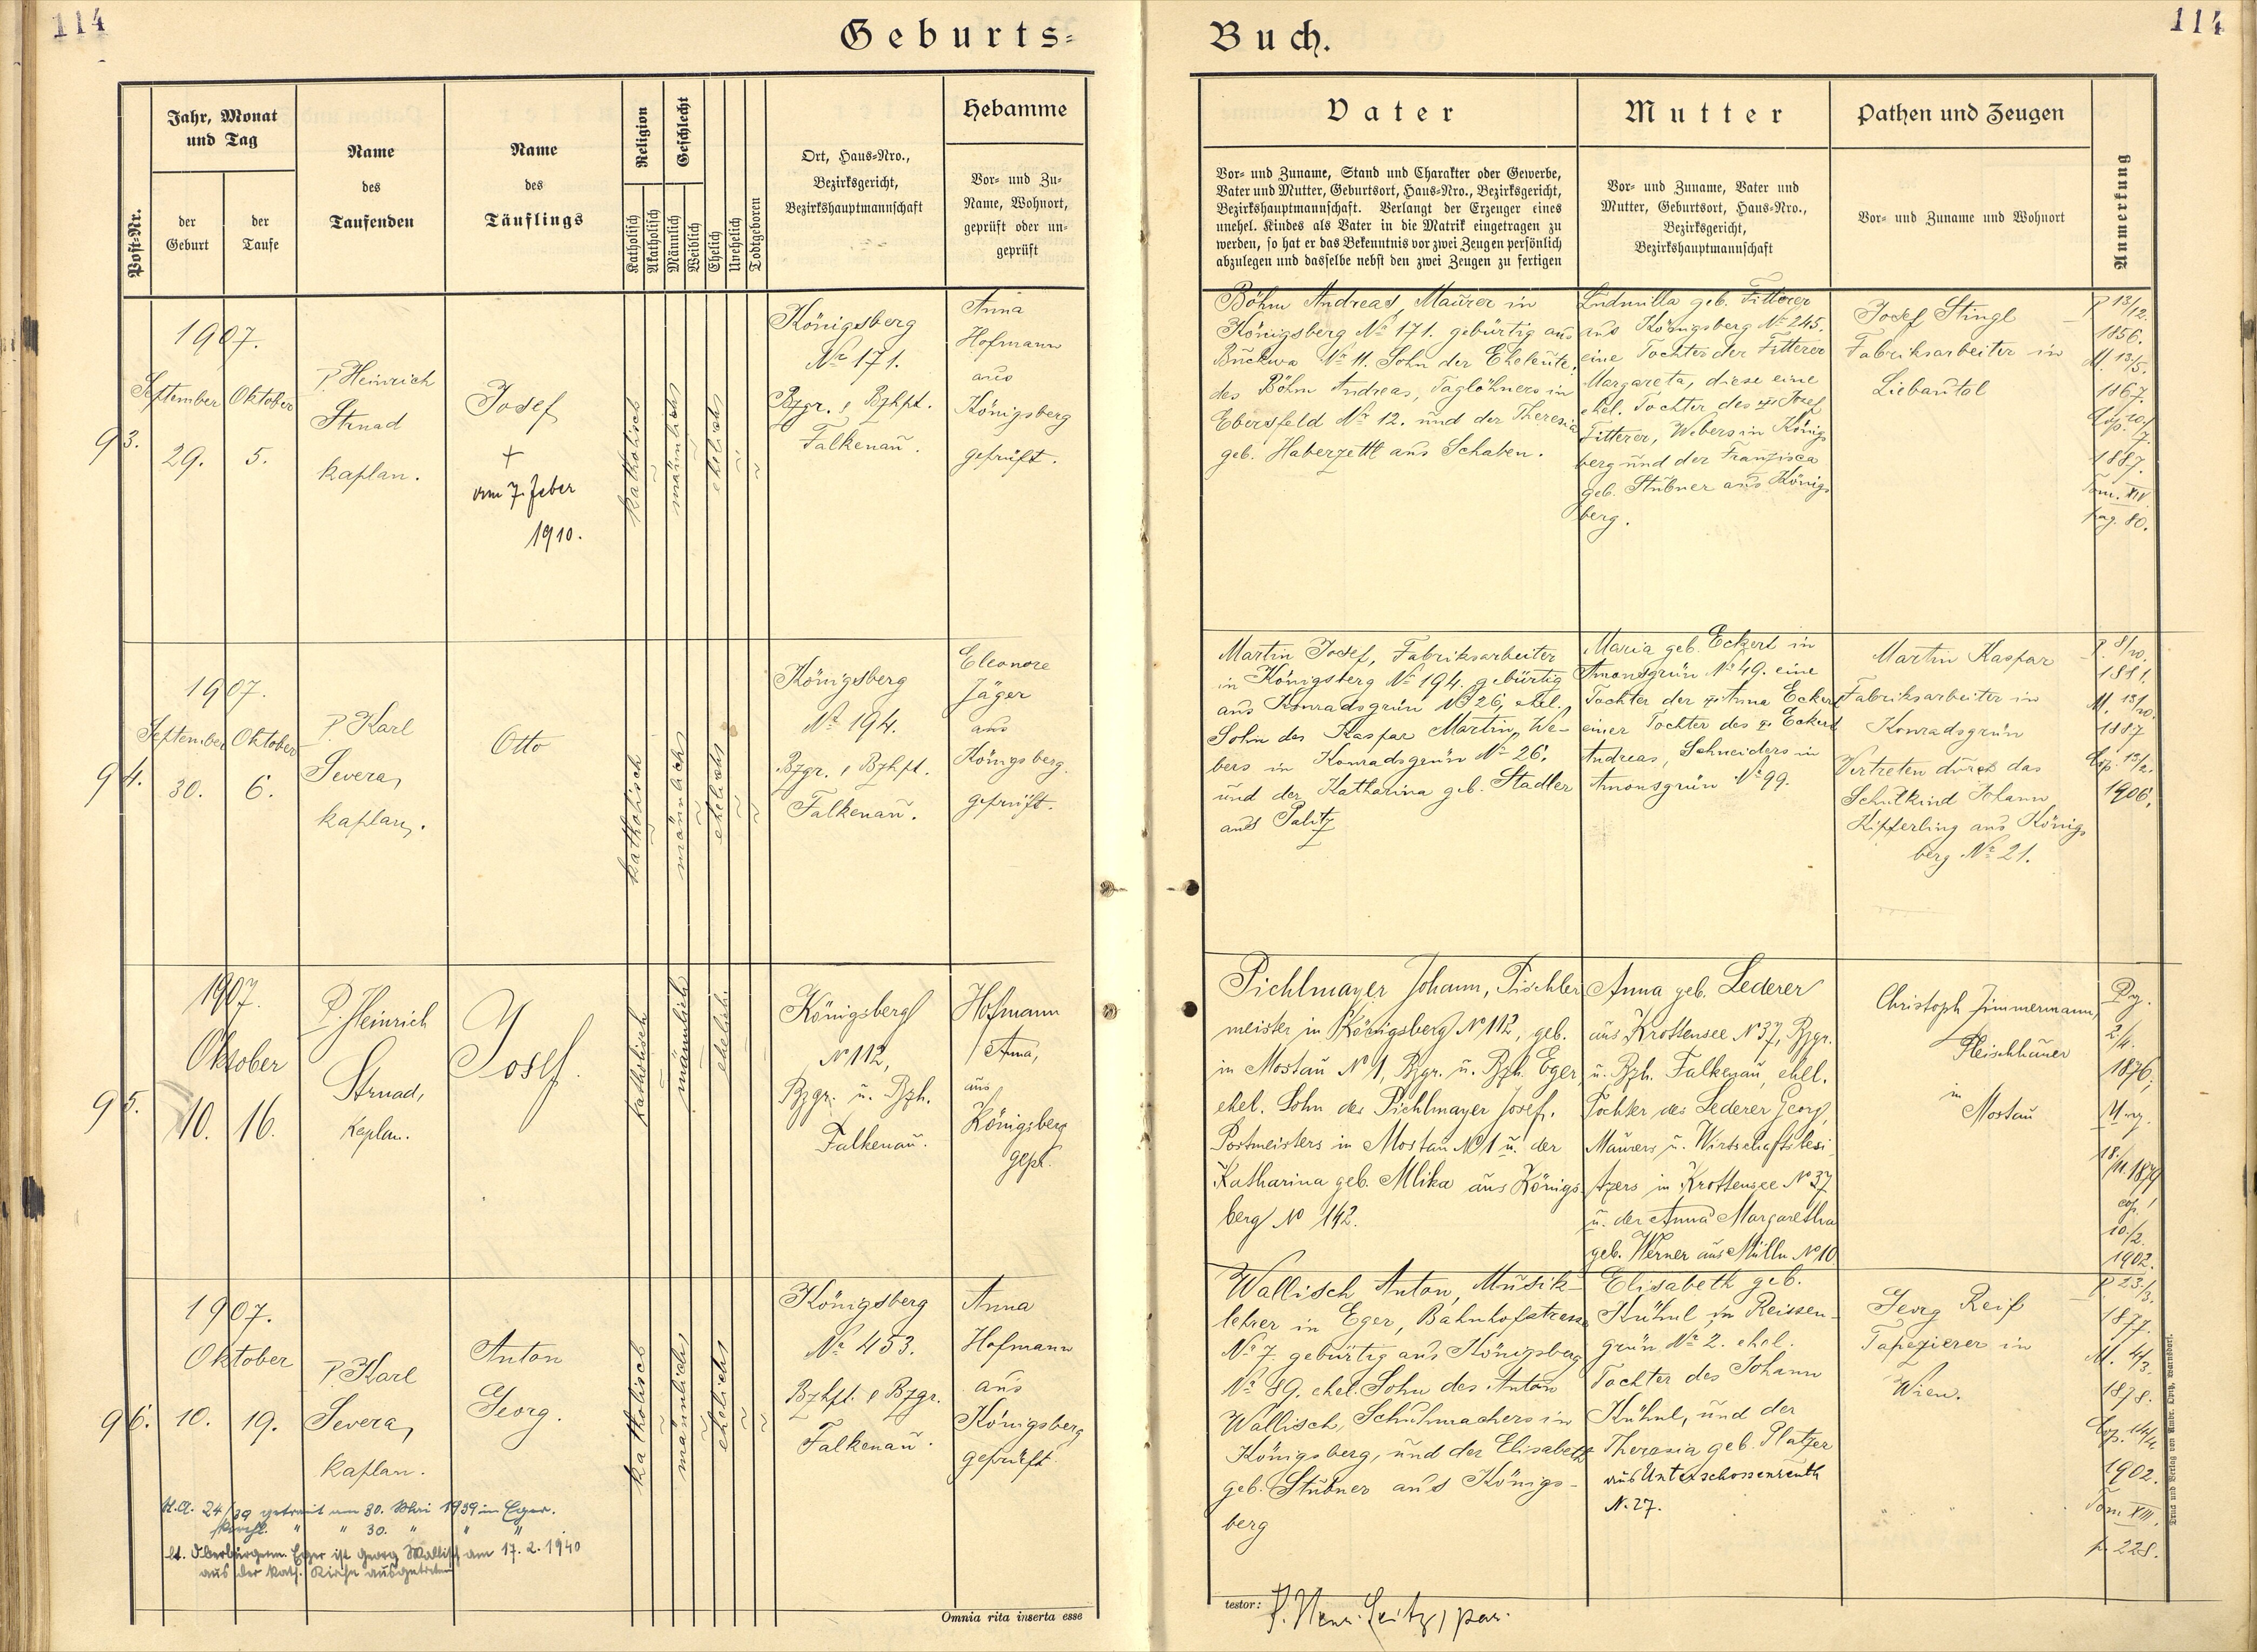 114
Geburts-
Buch.
114
Post-Nr.
Jahr, Monat
und Tag
der
Geburt
der
Taufe
Name
des
Taufenden
Name
des
Täuflings
Religion
Katholisch
Akatholisch
Geschlecht
Männlich
Weiblich
Ehelich
Unehelich
Todtgeboren
Ort, Haus-Nro.,
Bezirksgericht,
Bezirkshauptmannschaft
Hebamme
Vor- und Zu-
Name, Wohnort,
geprüft oder un-
geprüft
Vater
Vor- und Zuname, Stand und Charakter oder Gewerbe,
Vater und Mutter, Geburtsort, Haus-Nro., Bezirksgericht,
Bezirkshauptmannschaft. Verlangt der Erzeuger eines
unehel. Kindes als Vater in die Matrik eingetragen zu
werden, so hat er das Bekenntnis vor zwei Zeugen persönlich
abzulegen und dasselbe nebst den zwei Zeugen zu fertigen
Mutter
Vor- und Zuname, Vater und
Mutter, Geburtsort, Haus-Nro.,
Bezirksgericht,
Bezirkshauptmannschaft
Pathen und Zeugen
Vor- und Zuname und Wohnort
Anmerkung
93.
1907.
September
29.
Oktober
5.
P. Heinrich
Strnad
kaplan.
Josef
+
am 7. Feber
1910.
katholisch
männlich
ehelich
Königsberg
No 171.
Bzgr. & Bzhpt.
Falkenau.
Anna
Hofmann
aus
Königsberg
geprüft.
Böhm Andreas, Maurer in
Königsberg No 171. gebürtig aus
Buckwa No 11. Sohn der Eheleute,
des Böhm Andreas, Taglöhners in
Ebersfeld No 12. und der Theresia
geb. Haberzettl aus Schaben.
Ludmilla geb. Fitterer
aus Königsberg No 245.
eine Tochter der Fitterer
Margareta, diese eine
ehel. Tochter des Josef
Fitterer, Webers in Königs
berg und der Franzisca
geb. Stübner aus Königs
berg.
Josef Stingl
Fabriksarbeiter in
Liebautal
P 13/12.
1856.
M. 13/5.
1867.
Cop. 10/7.
1887.
Tom. XIV
pag. 80.
94.
1907.
September
30.
Oktober
6.
P. Karl
Severa,
kaplan.
Otto
katholisch
männlich
ehelich
Königsberg
No 194.
Bzgr. & Bzhpt.
Falkenau.
Eleonore
Jäger
aus
Königsberg.
geprüft.
Martin Josef, Fabriksarbeiter
in Königsberg No 194. gebürtig
aus Konradsgrün No 26, ehel.
Sohn des Kaspar Martin, We-
bers in Konradsgrün No 26.
und der Katharina geb. Stadler
aus Palitz
Maria geb. Eckert in
Amonsgrün No 49. eine
Tochter der Anna Eckert
einer Tochter des Eckert
Andreas, Schneiders in
Amonsgrün No 99.
Martin Kaspar
Fabriksarbeiter in
Konradsgrün
Vertreten durch das
Schulkind Johann
Kipferling aus Königs
berg No 21.
P. 8/10.
1881.
M. 13/10.
1887
Cop. 13/2.
1906.
95.
1907.
Oktober
10.
16.
P. Heinrich
Strnad,
Kaplan.
Josef.
katholisch
männlich
ehelich
Königsberg
No 112,
Bzgr. u. Bzh.
Falkenau.
Hofmann
Anna,
aus
Königsberg
gepr.
Pichlmayer Johann, Tischler
meister in Königsberg No 112, geb.
in Mostau No 1, Bzgr. u. Bzh. Eger,
ehel. Sohn des Pichlmayer Josef,
Postmeisters in Mostau No 1 u. der
Katharina geb. Mlika aus Königs
berg No 142.
Anna geb. Lederer
aus Krottensee No 37, Bzgr.
u. Bzh. Falkenau, ehel.
Tochter des Lederer Georg,
Maurers u. Wirtschaftsbesi
tzers in Krottensee No 37
u. der Anna Margaretha
geb. Werner aus Mülln No 10
Christoph Zimmermann,
Fleischhauer
in
Mostau
2/4.
1876;
18/11.1879
cop.
10/2.
1902.
96.
1907.
Oktober
10.
19.
P. Karl
Severa,
kaplan.
Anton
Georg.
katholisch
männlich
ehelich
Königsberg
No 453.
Bzhpt. & Bzgr.
Falkenau.
Anna
Hofmann
aus
Königsberg
geprüft
Wallisch Anton, Musik-
lehrer in Eger, Bahnhofstrasse
No 7. gebürtig aus Königsberg
No 89. ehel. Sohn des Anton
Wallisch, Schuhmachers in
Königsberg, und der Elisabeth
geb. Stübner aus Königs-
berg
Elisabeth geb.
Kühnl in Reissen-
grün No 2. ehel.
Tochter des Johann
Kühnl, und der
Therasia geb. Platzer
aus Unterschossenreuth
N. 27.
Georg Reiß
Tapezierer in
Wien.
P 23/3.
1877.
M. 4/3.
1878.
Cop. 14/4
1902.
Tom XIII.
p. 228.
24/39 getraut am 30. Mai 1939 in Eger.
kirchl. " " 30. " " "
lt. Oberbürgerm. Eger ist Georg Wallisch am 17.2.1940
aus der kath. Kirche ausgetreten
Omnia rita inserta esse
testor:
Druck und Verlag von Ambr. Opitz, Warnsdorf.